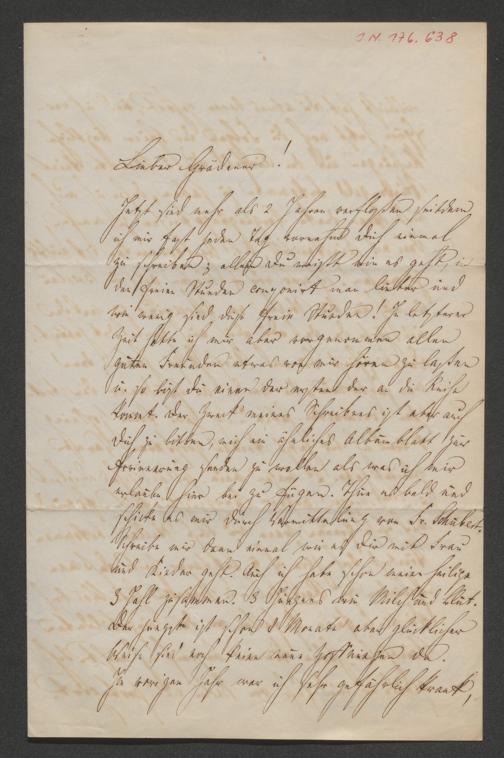 I N. 176.638
Lieber Grädener!
Jetzt sind mehr als 2 Jahre verflossen seitdem
ich mir fast jeden Tag vornehme Dich einmal
zu schreiben; allein Du weißt wie es geht, in
den freien Stunden componirt man lieber und
wie wenig sind diese freien Stunden! In letzterer
Zeit habe ich mir aber vorgenommen allen
guten Freunden etwas von mir hören zu lassen
u. so bist Du einer der ersten der an die Reihe
kommt. Der Zweck meines Schreibens ist aber auch
Dich zu bitten, mir ein ähnliches Albumblatt zur
Erinnerung senden zu wollen als was ich mir
erlaube hier bei zu fügen. Thue es bald und
schicke es mir durch Vermittelung von Fr. Schubert.
Schreibe mir dann einmal wie es Dir mit Frau
und Kinder geht. Auch ich habe schon meine heilige
3 Zahl zusammen. 3 Jungens wie Milch und Blut.
Der jüngste ist schon 8 Monate aber glücklicher
Weise sind noch keine neue da.
Im vorigen Jahr war ich sehr gefährlich krank,